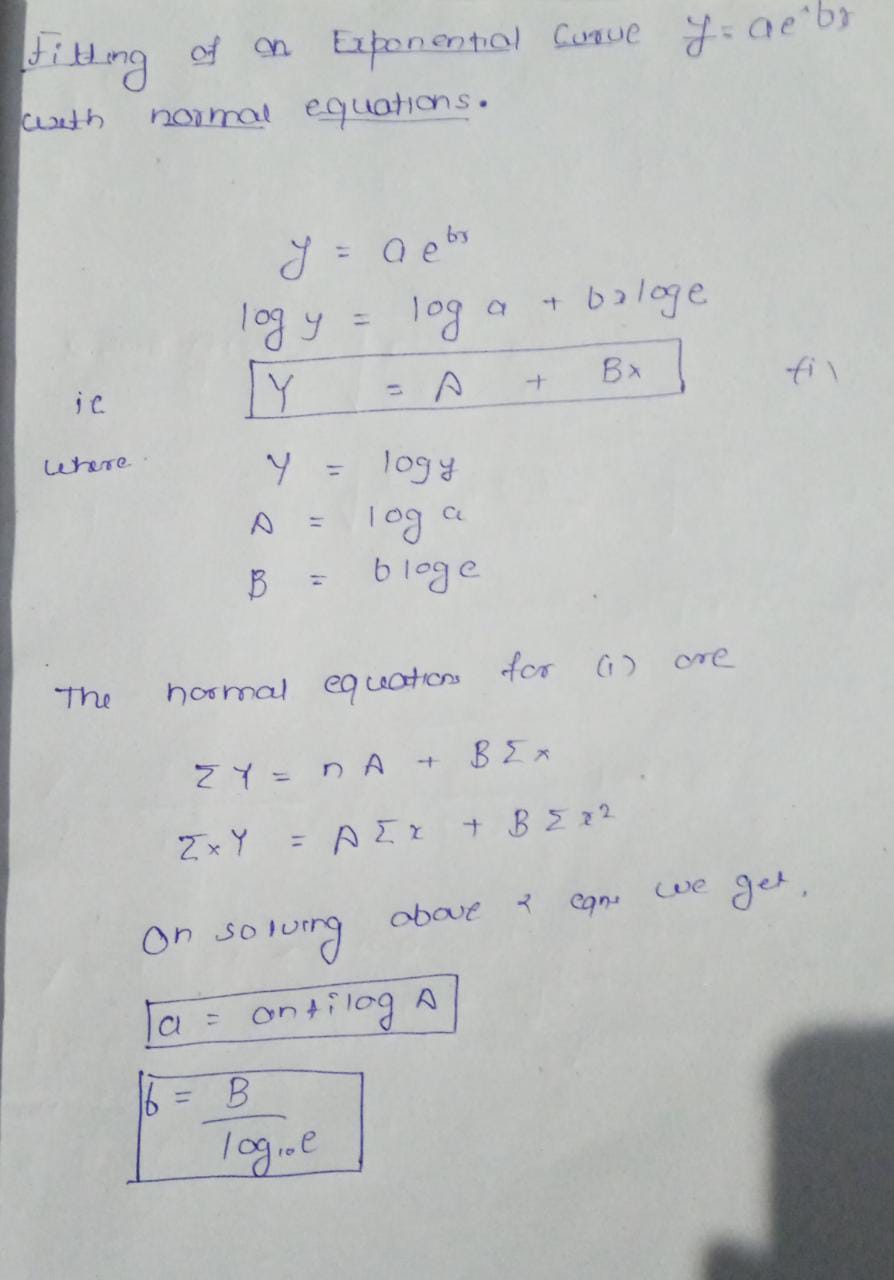 Fitting of an Exponential Curve y = ae^bx
with normal equations.
y = a e^bx
log y = log a + bx log e
ie Y = A + Bx (i)
where Y = log y
A = log a
B = b log e
The normal equations for (i) are
ΣY = nA + BΣx
ΣxY = AΣx + BΣx²
On solving above 2 eqns we get,
a = antilog A
b = B
log₁₀e